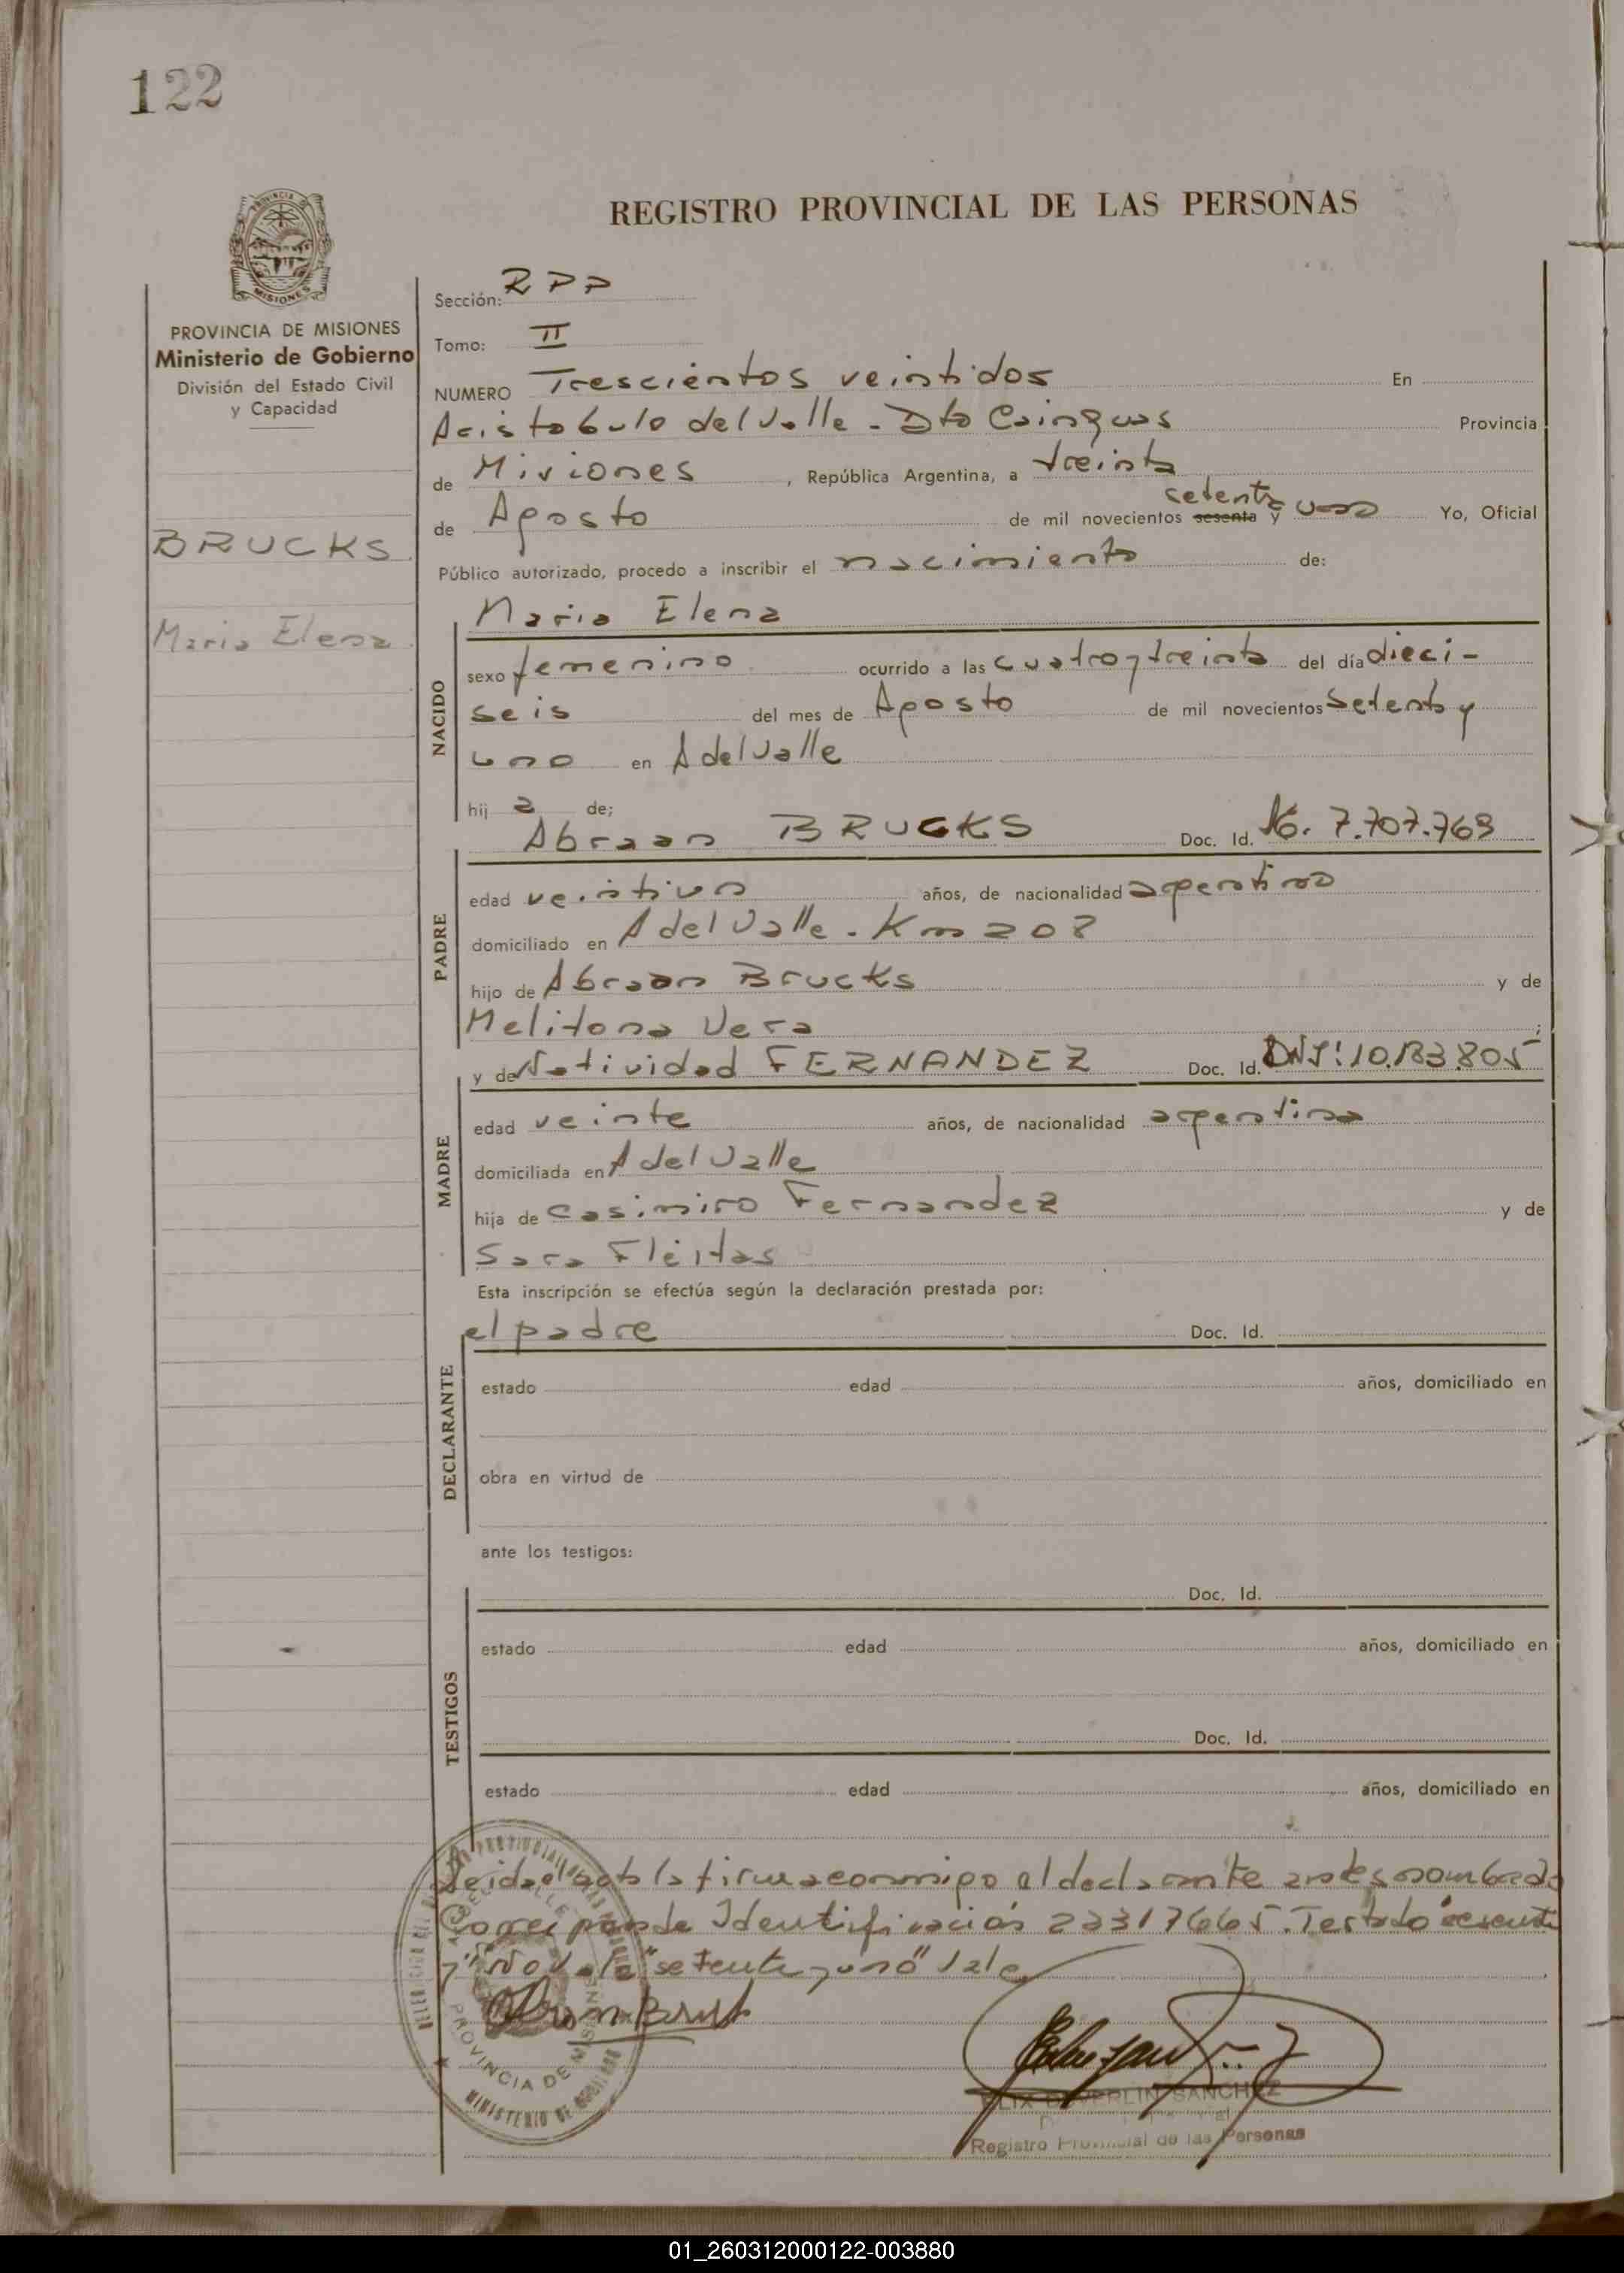 122
REGISTRO PROVINCIAL DE LAS PERSONAS
MISIONES
PROVINCIA DE MISIONES
Ministerio de Gobierno
División del Estado Civil
y Capacidad
BRUCKS
Maria Elena
Sección: RPP
Tomo: II
NUMERO Trescientos veintidos En
Aristobulo del Valle - Dto Cainguas Provincia
de Misiones , República Argentina, a treinta
setenta
de Agosto de mil novecientos sesenta y uno Yo, Oficial
Público autorizado, procedo a inscribir el nacimiento de:
Maria Elena
NACIDO
sexo femenino ocurrido a las cuatro y treinta del día dieci-
seis del mes de Agosto de mil novecientos setenta y
uno en A del Valle
hij a de;
Abraan BRUCKS Doc. Id. 7.707.769
PADRE
edad veintiun años, de nacionalidad argentino
domiciliado en A del Valle - Km 208
hijo de Abraan Brucks y de
Melitona Vera ;
y de Natividad FERNANDEZ Doc. Id. DNI: 10.183.805
MADRE
edad veinte años, de nacionalidad argentina
domiciliada en A del Valle
hija de Casimiro Fernandez y de
Sara Fleitas
Esta inscripción se efectúa según la declaración prestada por:
el padre Doc. Id.
DECLARANTE
estado edad años, domiciliado en
obra en virtud de
ante los testigos:
Doc. Id.
TESTIGOS
estado edad años, domiciliado en
Doc. Id.
estado edad años, domiciliado en
Leida el acta la firma conmigo el declarante antes nombrado
Corresponde Identificacion 22317665. Testado "sesenta
y" No vale "setenta y uno" Vale
PROVINCIA DE MISIONES
MINISTERIO DE GOBIERNO
SANCHEZ
Registro Provincial de las Personas
01_260312000122-003880